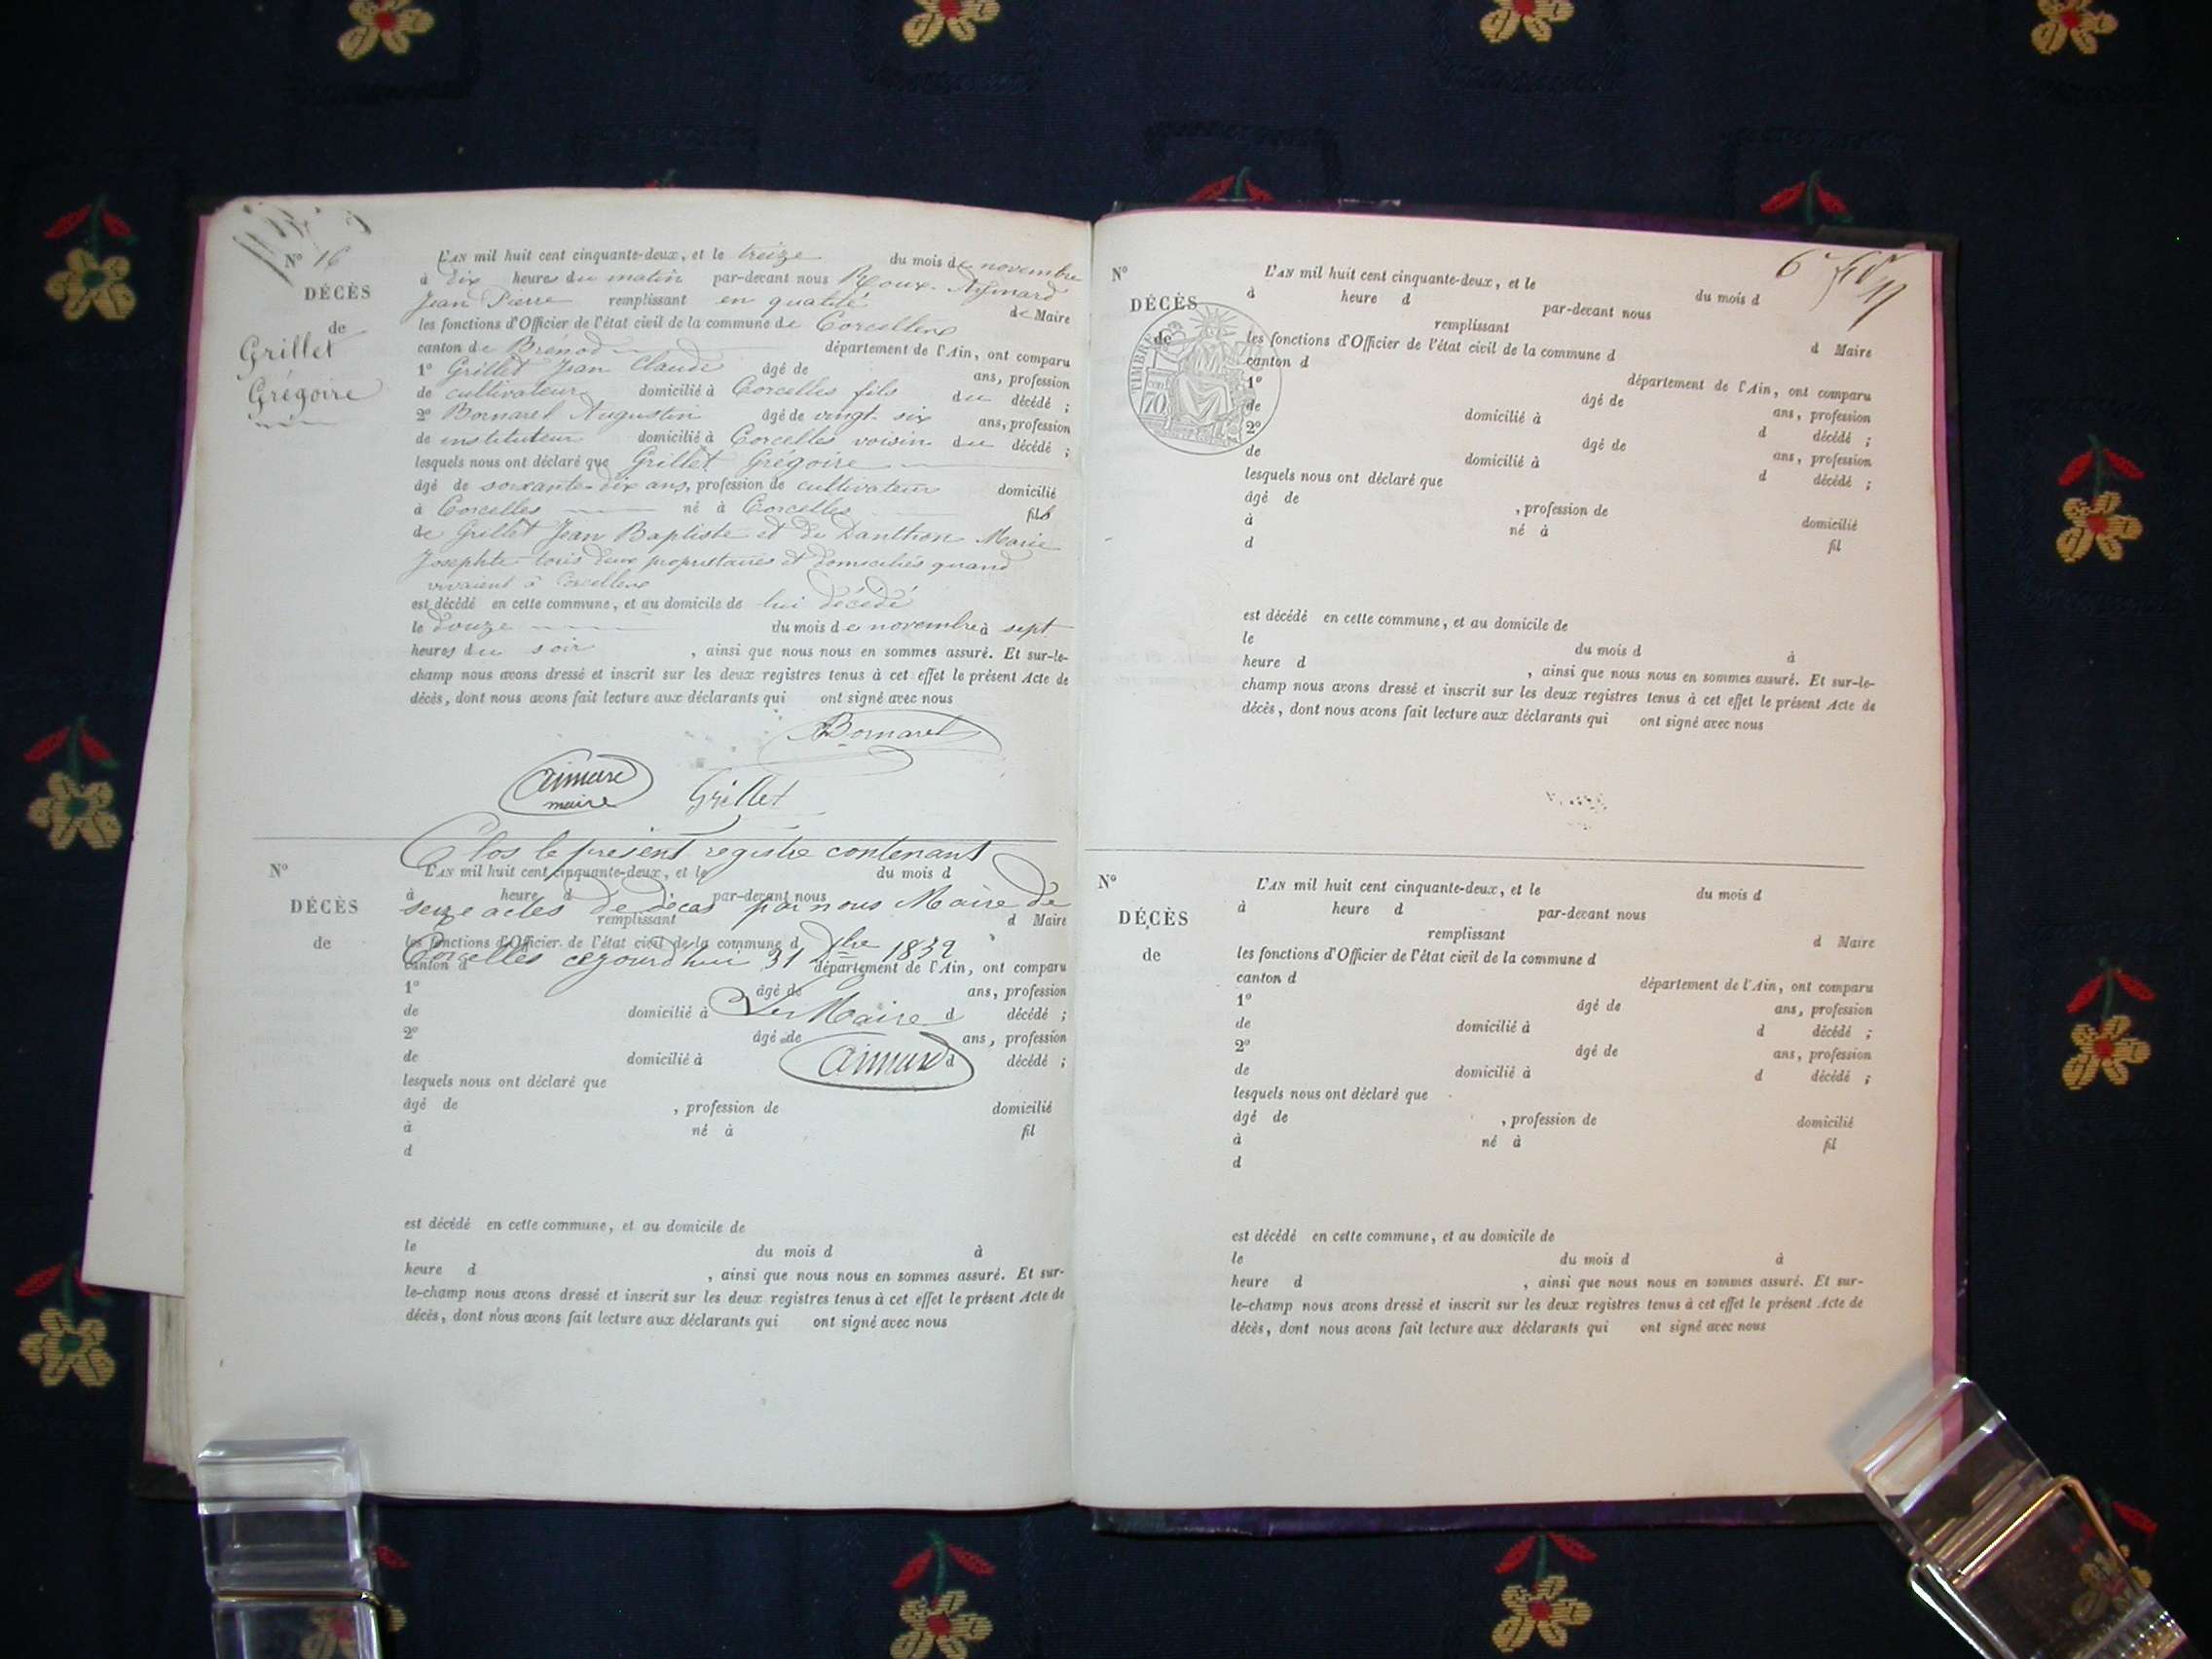 N° 16
DÉCÈS
de
Grillet
Grégoire
L'AN mil huit cent cinquante-deux, et le treize du mois de novembre
à dix heures du matin par-devant nous Roux-Aymard
Jean Pierre remplissant en qualité de Maire
les fonctions d'Officier de l'état civil de la commune de Corcelles
canton de Brénod département de l'Ain, ont comparu
1° Grillet Jean Claude âgé de ans, profession
de cultivateur domicilié à Corcelles fils du décédé ;
2° Bornarel Augustin âgé de vingt-six ans, profession
de instituteur domicilié à Corcelles voisin du décédé ;
lesquels nous ont déclaré que Grillet Grégoire
âgé de soixante-dix ans, profession de cultivateur domicilié
à Corcelles né à Corcelles fils
de Grillet Jean Baptiste et de Danthon Marie
Josephte tous deux propriétaires et domiciliés quand
vivaient à Corcelles
est décédé en cette commune, et au domicile de lui décédé
le douze du mois de novembre à sept
heures du soir , ainsi que nous nous en sommes assuré. Et sur-le-
champ nous avons dressé et inscrit sur les deux registres tenus à cet effet le présent Acte de
décès, dont nous avons fait lecture aux déclarants qui ont signé avec nous
Bornarel
Aimard
maire
Grillet
Clos le présent registre contenant
seize actes de décès par nous Maire de
Corcelles cejourd'hui 31 Xbre 1852
Le Maire
Aimard
N°
DÉCÈS
de
L'AN mil huit cent cinquante-deux, et le du mois d
à heure d par-devant nous
remplissant d Maire
les fonctions d'Officier de l'état civil de la commune d
canton d département de l'Ain, ont comparu
1° âgé de ans, profession
de domicilié à d décédé ;
2° âgé de ans, profession
de domicilié à d décédé ;
lesquels nous ont déclaré que
âgé de , profession de domicilié
à né à fil
d
est décédé en cette commune, et au domicile de
le du mois d à
heure d , ainsi que nous nous en sommes assuré. Et sur-
le-champ nous avons dressé et inscrit sur les deux registres tenus à cet effet le présent Acte de
décès, dont nous avons fait lecture aux déclarants qui ont signé avec nous
6e
N°
DÉCÈS
de
TIMBRE
70
L'AN mil huit cent cinquante-deux, et le du mois d
à heure d par-devant nous
remplissant d Maire
les fonctions d'Officier de l'état civil de la commune d
canton d département de l'Ain, ont comparu
1° âgé de ans, profession
de domicilié à d décédé ;
2° âgé de ans, profession
de domicilié à d décédé ;
lesquels nous ont déclaré que
âgé de , profession de domicilié
à né à fil
d
est décédé en cette commune, et au domicile de
le du mois d à
heure d , ainsi que nous nous en sommes assuré. Et sur-le-
champ nous avons dressé et inscrit sur les deux registres tenus à cet effet le présent Acte de
décès, dont nous avons fait lecture aux déclarants qui ont signé avec nous
N°
DÉCÈS
de
L'AN mil huit cent cinquante-deux, et le du mois d
à heure d par-devant nous
remplissant d Maire
les fonctions d'Officier de l'état civil de la commune d
canton d département de l'Ain, ont comparu
1° âgé de ans, profession
de domicilié à d décédé ;
2° âgé de ans, profession
de domicilié à d décédé ;
lesquels nous ont déclaré que
âgé de , profession de domicilié
à né à fil
d
est décédé en cette commune, et au domicile de
le du mois d à
heure d , ainsi que nous nous en sommes assuré. Et sur-
le-champ nous avons dressé et inscrit sur les deux registres tenus à cet effet le présent Acte de
décès, dont nous avons fait lecture aux déclarants qui ont signé avec nous